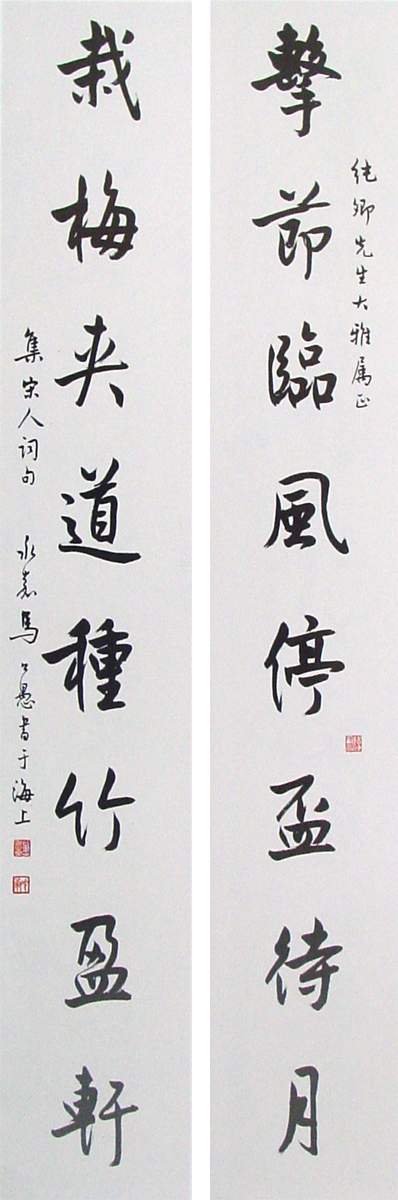 純卿先生大雅属正
擊節臨風停盃待月
栽梅夾道種竹盈軒
集宋人詞句 永嘉馬公愚書于海上